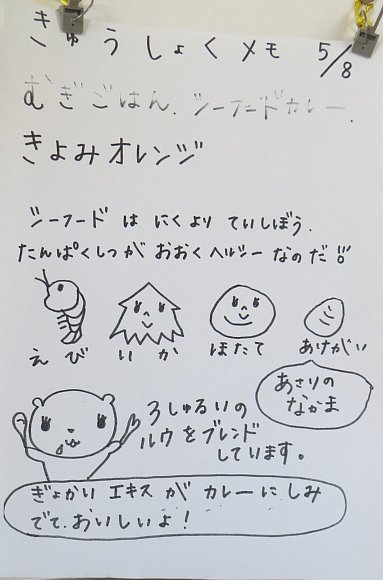 きゅうしょくメモ 5/8
むぎごはん、シーフードカレー、
きよみオレンジ
シーフードはにくよりていしぼう、
たんぱくしつがおおくヘルシーなのだ!!
えび いか ほたて あけがい
あさりの
なかま
3しゅるいの
ルウをブレンド
しています。
ぎょかいエキスがカレーにしみ
でて、おいしいよ!